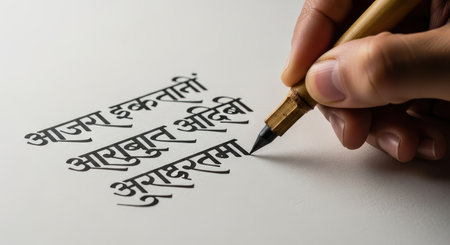 आजरा इकतानीं
आराबुात अदिबी
अुराइरतमा